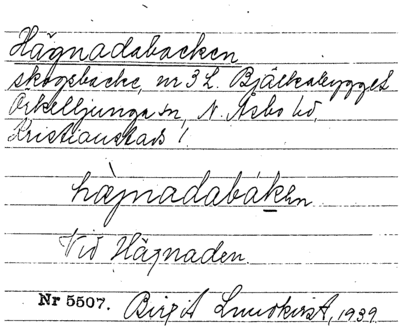 Hägnadabacken
skogsbacke, nr 3 L. Bjälkabygget
Örkelljunga sn, N. Åsbo hd,
Kristianstads l.
hägnadabáken
Vid Hägnaden.
Nr 5507. Birgit Lundkvist, 1939.